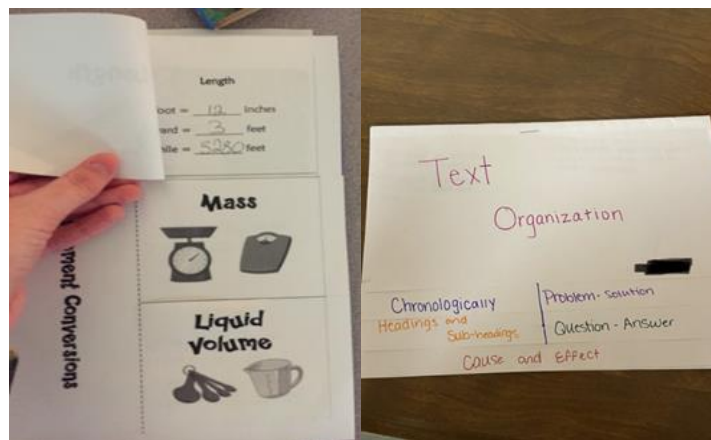 Length
oot = 12 inches
ard = 3 feet
ile = 5280 feet
Mass
Liquid
Volume
ment Conversions
Text
Organization
Chronologically
Headings and
Sub-headings
Problem-Solution
Question-Answer
Cause and Effect